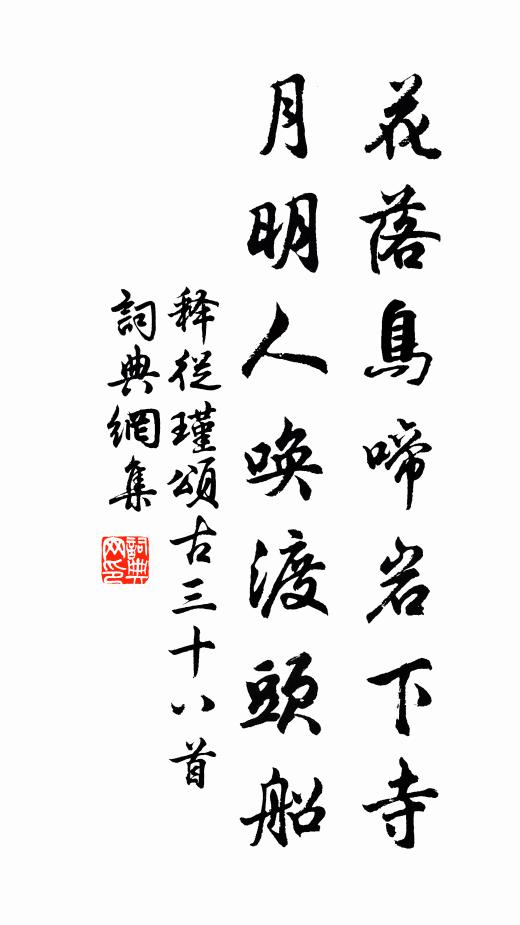 花落鳥啼岩下寺
月明人喚渡頭船
释從瑾頌古三十八首
詞典網集
詞典
网印